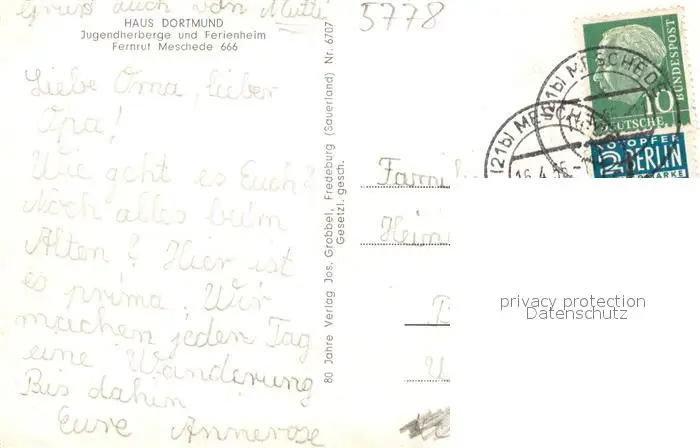 Gruß auch von Mutti
HAUS DORTMUND
Jugendherberge und Ferienheim
Fernruf Meschede 666
Liebe Oma, lieber
Opa!
Wie geht es Euch?
Noch alles beim
Alten? Hier ist
es prima. Wir
machen jeden Tag
eine Wanderung
Bis dahin
Eure Annerose
80 Jahre Verlag Jos. Grobbel, Fredeburg (Sauerland) Nr. 6707
Gesetzl. gesch.
5778
10
DEUTSCHE
BUNDESPOST
NOTOPFER
2 BERLIN
STEUERMARKE
(21b) MESCHEDE
(21b) MESCHEDE
16.4.56
Famili
Heinr
privacy protection
Datenschutz